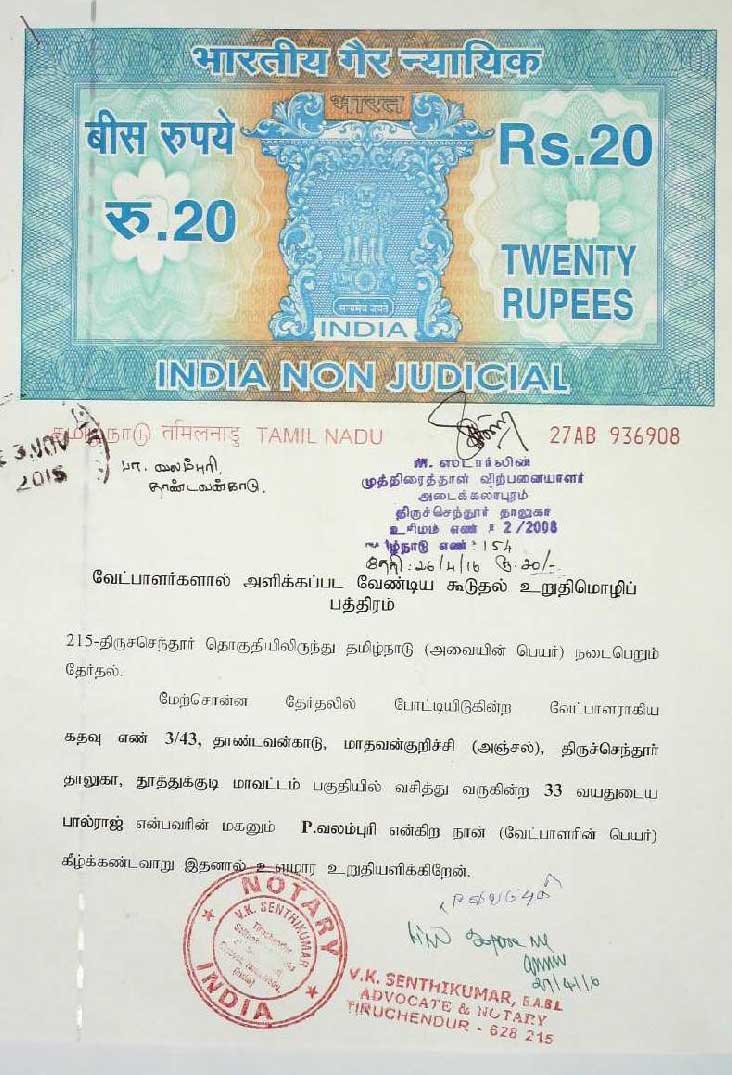 भारतीय गैर न्यायिक
भारत
बीस रुपये
Rs.20
रु.20
TWENTY
RUPEES
सत्यमेव जयते
INDIA
INDIA NON JUDICIAL
தமிழ்நாடு तमिलनाडु TAMIL NADU 27AB 936908
3 NOV
2015
பா. வலம்புரி,
தாண்டவன்காடு.
M. ஸ்டார்லின்
முத்திரைத்தாள் விற்பனையாளர்
அடைக்கலாபுரம்
திருச்செந்தூர் தாலுகா
உரிமம் எண் : 2/2008
எண் : 154
தேதி : 26/4/16 ரூ. 20/-
வேட்பாளர்களால் அளிக்கப்பட வேண்டிய கூடுதல் உறுதிமொழிப்
பத்திரம்
215-திருச்செந்தூர் தொகுதியிலிருந்து தமிழ்நாடு (அவையின் பெயர்) நடைபெறும்
தேர்தல்.
மேற்சொன்ன தேர்தலில் போட்டியிடுகின்ற வேட்பாளராகிய
கதவு எண் 3/43, தாண்டவன்காடு, மாதவன்குறிச்சி (அஞ்சல்), திருச்செந்தூர்
தாலுகா, தூத்துக்குடி மாவட்டம் பகுதியில் வசித்து வருகின்ற 33 வயதுடைய
பால்ராஜ் என்பவரின் மகனும் P.வலம்புரி என்கிற நான் (வேட்பாளரின் பெயர்)
கீழ்க்கண்டவாறு இதனால் உளமார உறுதியளிக்கிறேன்.
NOTARY
V.K. SENTHIKUMAR
INDIA
27/4/16
V.K. SENTHIKUMAR, B.A.B.L
ADVOCATE & NOTARY
TIRUCHENDUR - 628 215